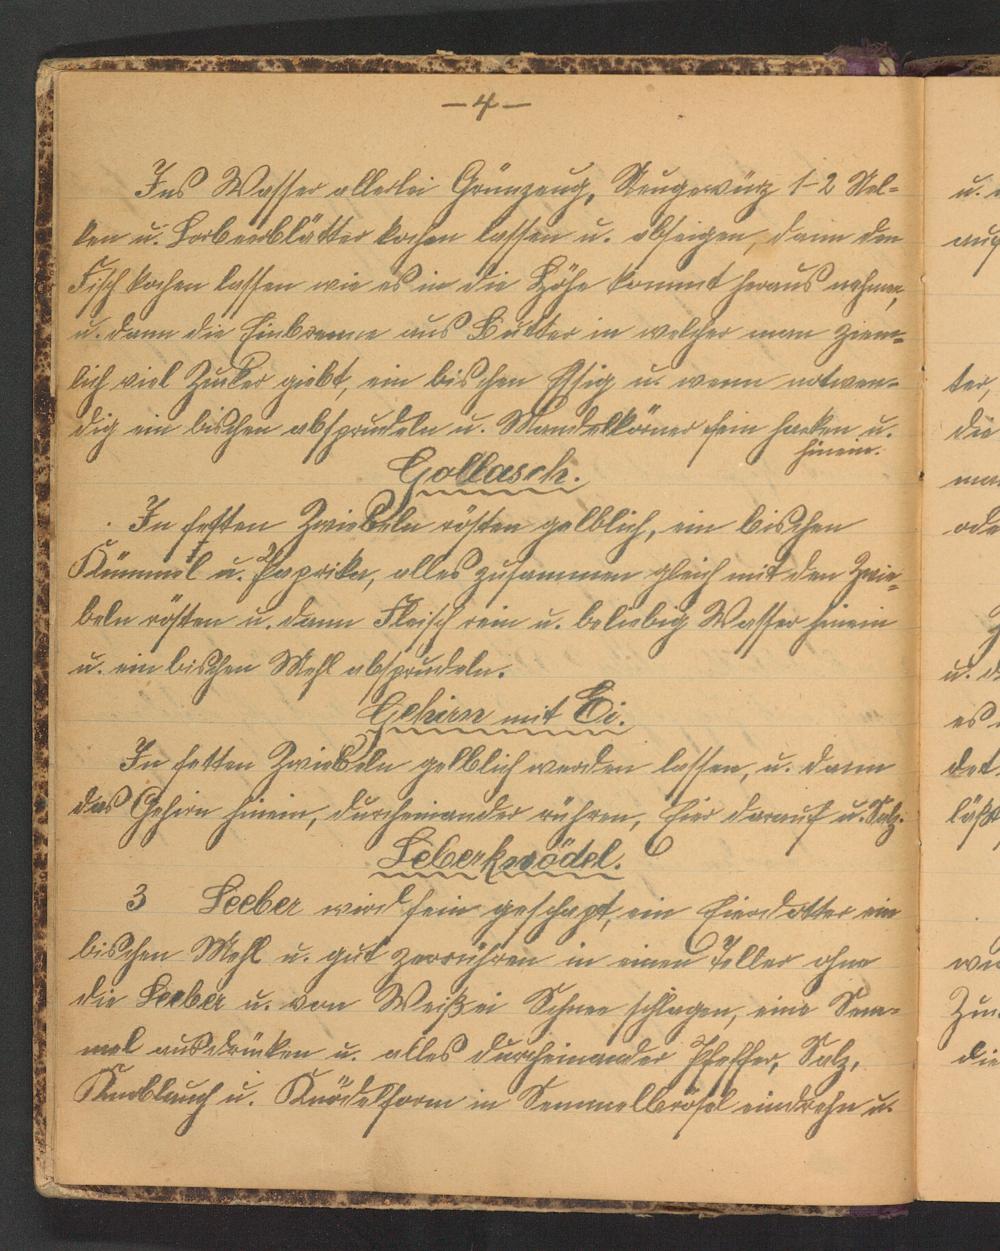 -4-
Ins Wasser allerlei Grünzeug, Neugewürz 1-2 Nel-
ken u. Lorbeerblätter kochen lassen u. abseigen, dann den
Fisch kochen lassen wie es in die Höhe kommt heraus nehmen,
u. dann die Einbrenne aus Butter in welcher man ziem-
lich viel Zucker giebt, ein bischen Essig u. wenn notwen-
dig ein bischen absprudeln u. Mandelkörner fein hacken u.
hinein.
Gollasch.
In fetten Zwiebeln rösten gelblich, ein bischen
Kümmel u. Paprika, alles zusammen gleich mit den Zwie-
beln rösten u. dann Fleisch rein u. beliebig Wasser hinein
u. ein bischen Mehl absprudeln.
Gehirn mit Ei.
In fetten Zwiebeln gelblich werden lassen, u. dann
das Gehirn hinein, durcheinander rühren, Eier darauf u. Salz.
Leberknödel.
3 Leeber wird fein geschapt, ein Eierdotter ein
bischen Mehl u. gut zerrühren in einen Teller ohne
die Leeber u. von Weißei Schnee schlagen, eine Sem-
mel ausdrücken u. alles durcheinander Pfeffer, Salz,
Knoblauch u. Knödelform in Semmelbrösel eindrehn u.
u.
auf
ter,
die
man
ode
u. d
es
det
läßt
Zu
die